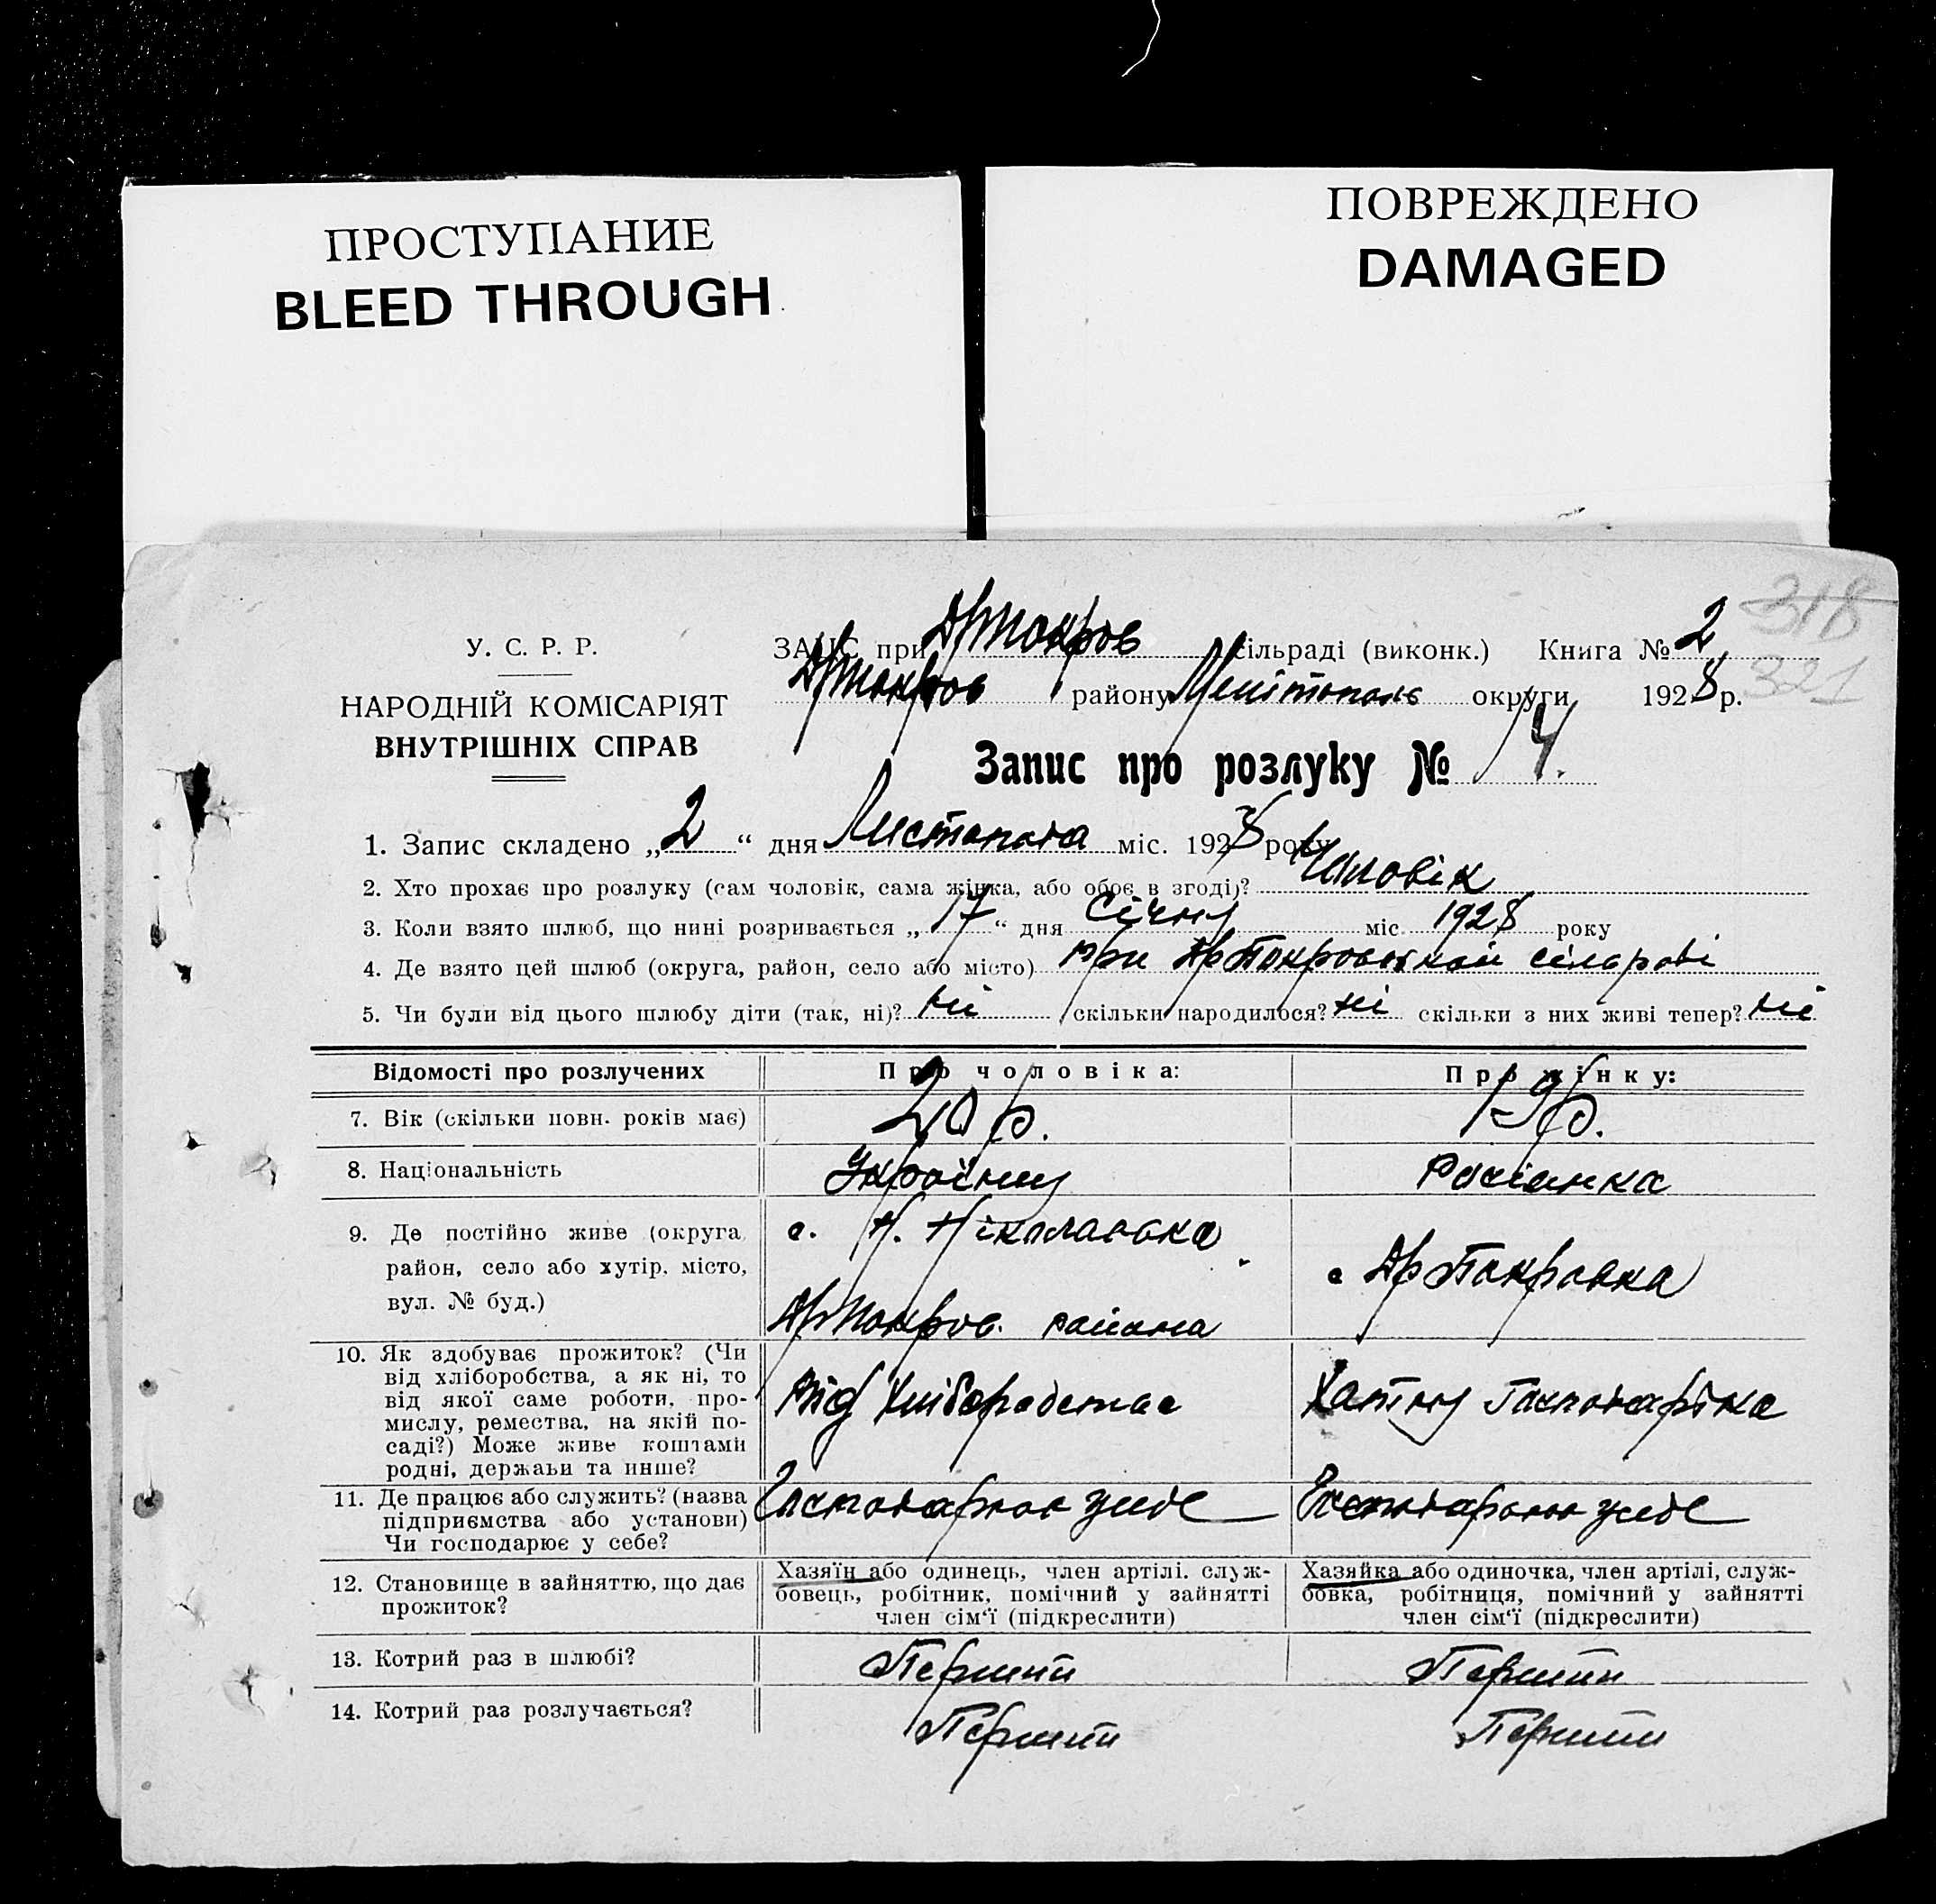 ПРОСТУПАНИЕ
BLEED THROUGH
ПОВРЕЖДЕНО
DAMAGED
318
321
У. С. Р. Р.
НАРОДНІЙ КОМІСАРІЯТ
ВНУТРІШНІХ СПРАВ
ЗАГС при Др Покров сільраді (виконк.) Книга № 2
Др Покров району Мелітополь округи 1928 р.
Запис про розлуку № 14.
1. Запис складено „ 2 “ дня Листопада міс. 1928 року
2. Хто прохає про розлуку (сам чоловік, сама жінка, або обоє в згоді)? Чоловік
3. Коли взято шлюб, що нині розривається „ 17 “ дня Січня міс. 1928 року
4. Де взято цей шлюб (округа, район, село або місто) при Др Покровській сільраді
5. Чи були від цього шлюбу діти (так, ні)? ні скільки народилося? ні скільки з них живі тепер? ні
Відомості про розлучених
Про чоловіка:
Про жінку:
7. Вік (скільки повн. років має)
20 р.
19 р.
8. Національність
Українец
Росіянка
9. Де постійно живе (округа,
район, село або хутір, місто,
вул. № буд.)
с. Н. Ніколаєвка
Др Покров. района
с Др Покровка
10. Як здобуває прожиток? (Чи
від хліборобства, а як ні, то
від якої саме роботи, про-
мислу, ремества, на якій по-
саді?) Може живе коштами
родні, держави та инше?
Від хліборобства
Хатня Господарька
11. Де працює або служить? (назва
підприємства або установи)
Чи господарює у себе?
Господарює у себе
Господарює у себе
12. Становище в зайняттю, що дає
прожиток?
Хазяїн або одинець, член артілі. служ-
бовець, робітник, помічний у зайнятті
член сім‘ї (підкреслити)
Хазяйка або одиночка, член артілі, служ-
бовка, робітниця, помічний у зайнятті
член сім‘ї (підкреслити)
13. Котрий раз в шлюбі?
Перший
Перший
14. Котрий раз розлучається?
Перший
Перший